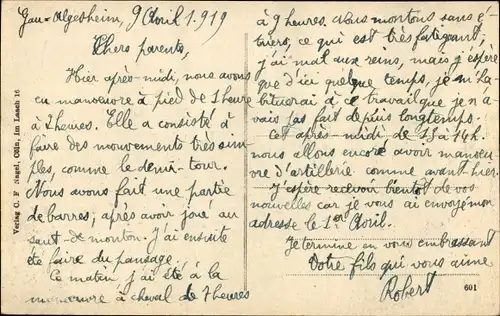 Gau-Algesheim, 9 Avril 1919
Chers parents,
Hier après-midi, nous avons
eu manoeuvre à pied de 1 heure
à 2 heures. Elle a consisté à
faire des mouvements très sim-
ples, comme le demi-tour.
Nous avons fait une partie
de barres; après avoir joué au
saut-de-mouton. J'ai ensuite
été faire du pansage.
Ce matin j'ai été à la
manoeuvre à cheval de 7 heures
à 9 heures. Nous montons sans é-
triers, ce qui est très fatigant;
j'ai mal aux reins, mais j'espère
que d'ici quelque temps, je m'ha
bituerai à ce travail que je n'a
vais pas fait depuis longtemps.
Cet après-midi de 13 à 14h.
nous allons encore avoir manoeu
vre d'artillerie comme avant-hier.
J'espère recevoir bientôt de vos
nouvelles car je vous ai envoyé mon
adresse le 1er Avril.
Je termine en vous embrassant
Votre fils qui vous aime
Robert
Verlag C. F. Nagel, Cöln, Im Lasch 16
601